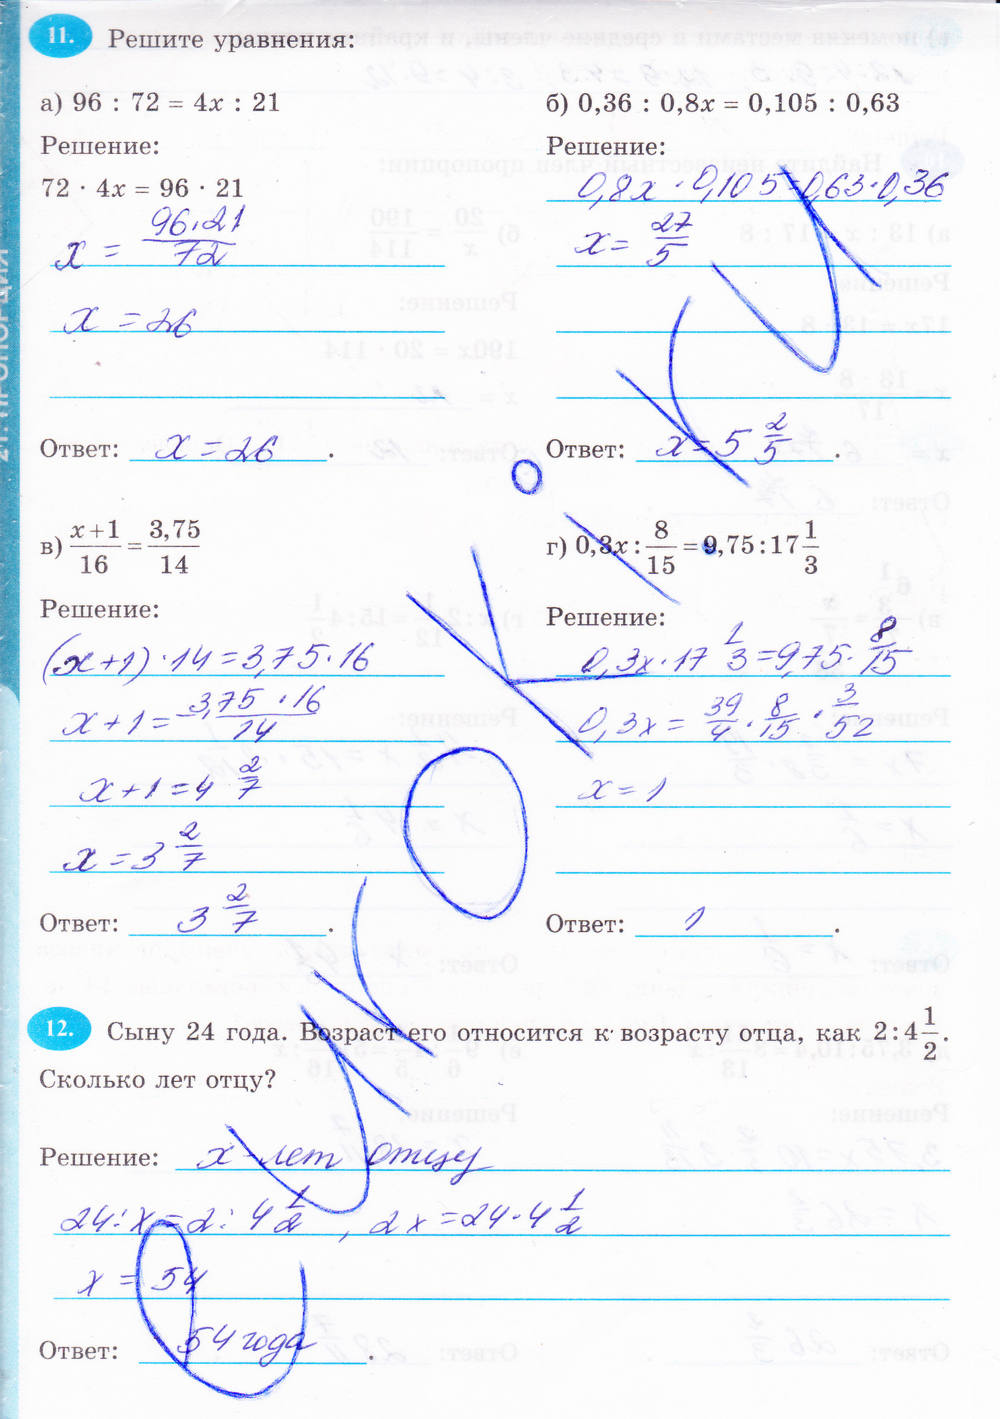 11. Решите уравнения:
а) 96 : 72 = 4x : 21
Решение:
72 · 4x = 96 · 21
x = 96·21/72
x = 26
Ответ: x = 26.
б) 0,36 : 0,8x = 0,105 : 0,63
Решение:
0,8x · 0,105 = 0,63 · 0,36
x = 27/5
Ответ: x = 5 2/5.
в) x+1/16 = 3,75/14
Решение:
(x+1) · 14 = 3,75 · 16
x+1 = 3,75 · 16/14
x+1 = 4 2/7
x = 3 2/7
Ответ: 3 2/7.
г) 0,3x : 8/15 = 9,75 : 17 1/3
Решение:
0,3x · 17 1/3 = 9,75 · 8/15
0,3x = 39/4 · 8/15 · 3/52
x = 1
Ответ: 1.
12. Сыну 24 года. Возраст его относится к возрасту отца, как 2 : 4 1/2.
Сколько лет отцу?
Решение: x лет отцу
24 : x = 2 : 4 1/2, 2x = 24 · 4 1/2
x = 54
Ответ: 54 года.